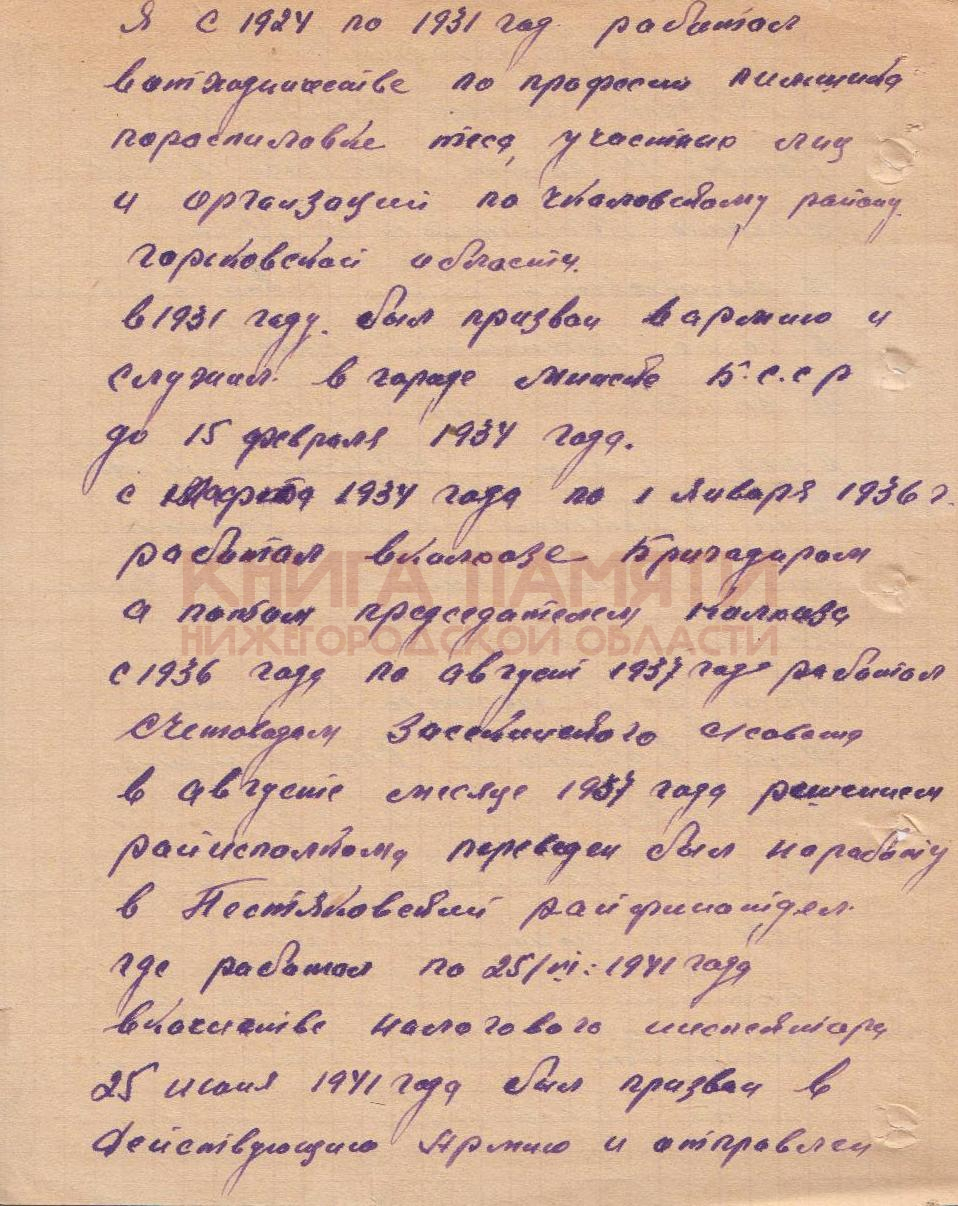 Я с 1924 по 1931 год работал
вотходничестве по профессии пильщика
пораспиловке теса, участных лиц
и органзаций по чкаловскому району
горьковской области.
в 1931 году. был призван вармию и
служил. в городе минске Б.С.С Р
до 15 февраля 1934 года.
с Марта 1934 года по 1 января 1936 г.
работал вколхозе Бригадиром
КНИГА ПАМЯТИ
а потом председателем колхоза
НИЖЕГОРОДСКОЙ ОБЛАСТИ
с 1936 года по август 1937 года работал
счетоводом с/совета
в августе месяце 1937 года решением
райисполкома переведен был наработу
в Пестяковский райфинотдел.
где работал по 25/VI: 1941 года
вкачестве налогового инспектора
25 июня 1941 года был призван в
Действующию Армию и отправлен